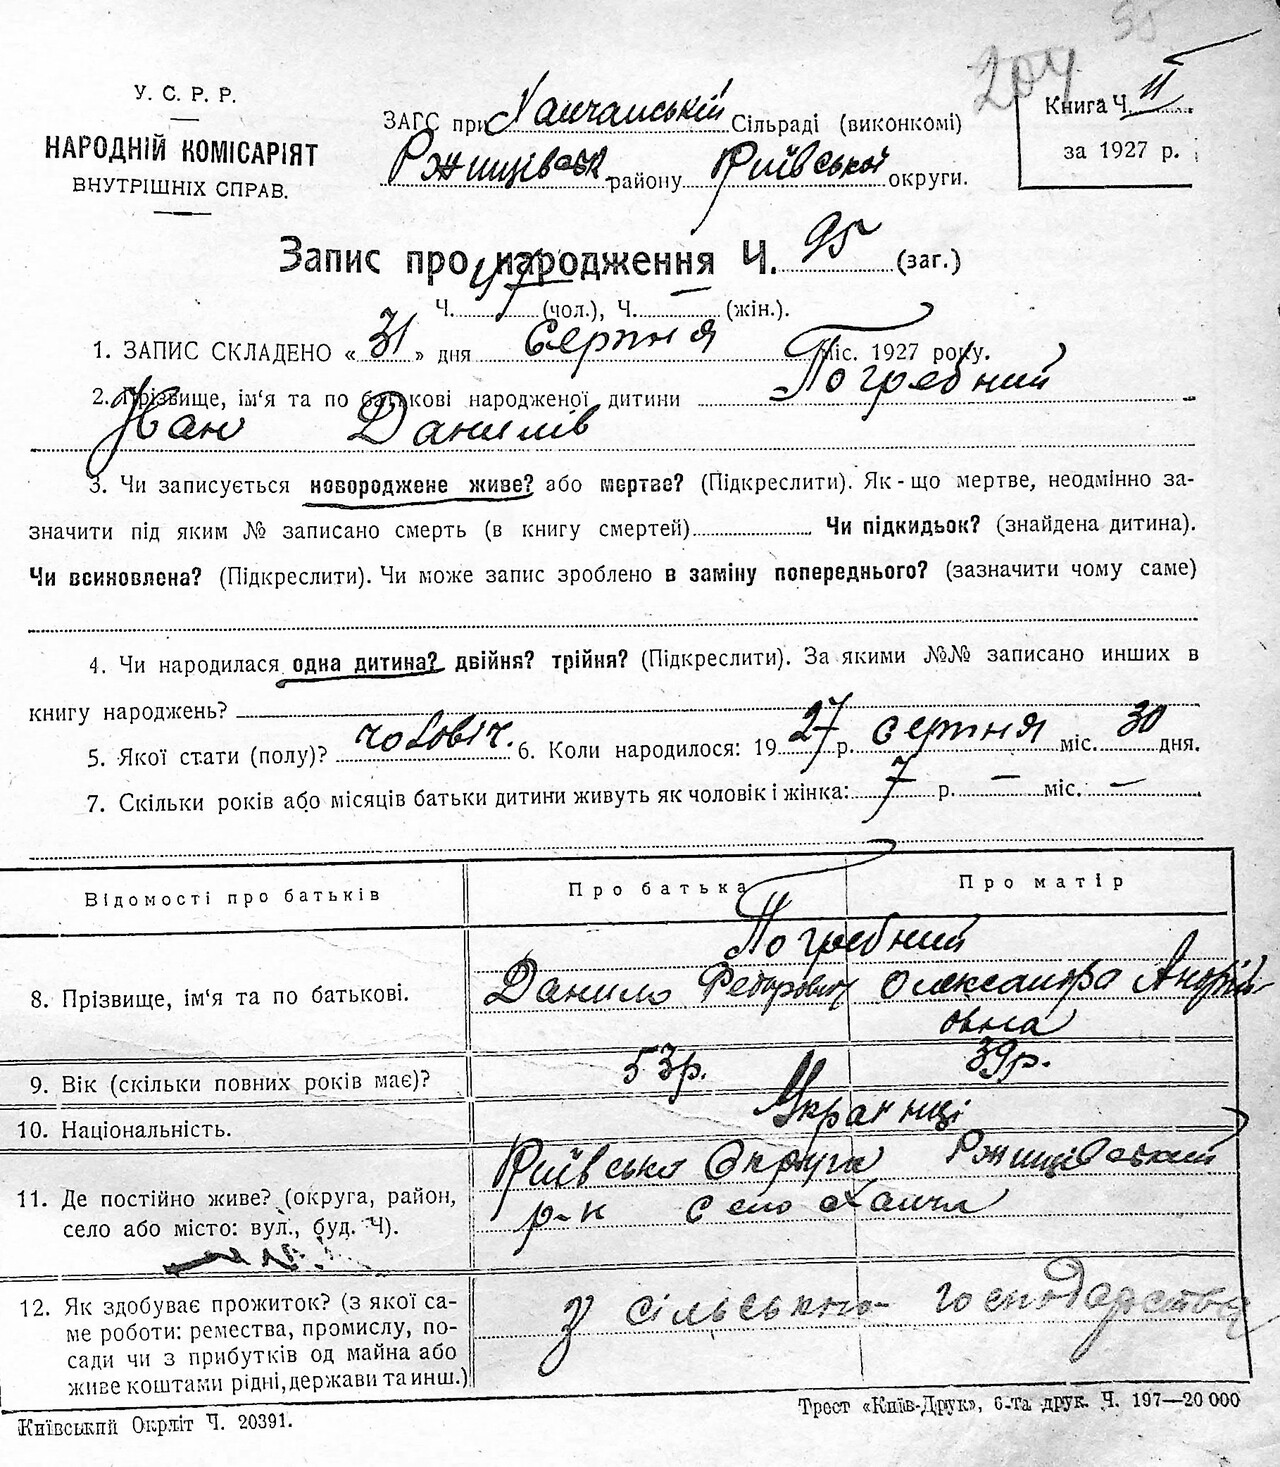 55
204
У. С. Р. Р.
НАРОДНІЙ КОМІСАРІЯТ
ВНУТРІШНІХ СПРАВ.
ЗАГС при Ханчанській Сільраді (виконкомі)
Ржищівськ. району Київської округи.
Книга Ч. II
за 1927 р.
Запис про народження Ч. 95 (заг.)
Ч. 47 (чол.), Ч. — (жін.).
1. ЗАПИС СКЛАДЕНО « 31 » дня Серпня міс. 1927 року.
2. Прізвище, ім'я та по батькові народженої дитини Погребний
Іван Данилів
3. Чи записується новороджене живе? або мертве? (Підкреслити). Як-що мертве, неодмінно за-
значити під яким № записано смерть (в книгу смертей) Чи підкидьок? (знайдена дитина).
Чи всиновлена? (Підкреслити). Чи може запис зроблено в заміну попереднього? (зазначити чому саме)
4. Чи народилася одна дитина? двійня? трійня? (Підкреслити). За якими №№ записано инших в
книгу народжень?
5. Якої стати (полу)? чоловіч. 6. Коли народилося: 1927 р. серпня міс. 30 дня.
7. Скільки років або місяців батьки дитини живуть як чоловік і жінка: 7 р. — міс. —
Відомості про батьків Про батька Про матір
8. Прізвище, ім'я та по батькові. Погребний
Данило Федорович Олександра Андрій-
овна
9. Вік (скільки повних років має)? 53р. 39р.
10. Національність. Українці
11. Де постійно живе? (округа, район, Київсько Округа Ржищівський
село або місто: вул., буд. Ч). р-н село Ханча
12. Як здобуває прожиток? (з якої са- З сільського господарства
ме роботи: ремества, промислу, по-
сади чи з прибутків од майна або
живе коштами рідні, держави та инш.)
Київський Окрліт Ч. 20391.
Трест «Київ-Друк», 6-та друк. Ч. 197—20 000